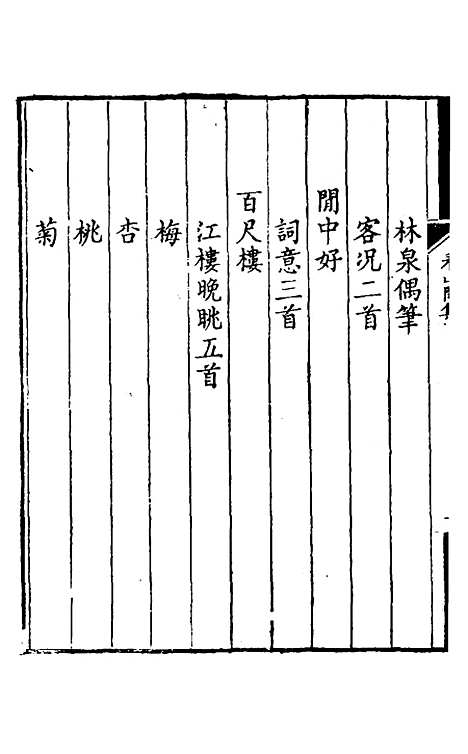 林泉偶筆
客况二首
閒中好
詞意三首
百尺樓
江樓晚眺五首
梅
杏
桃
菊